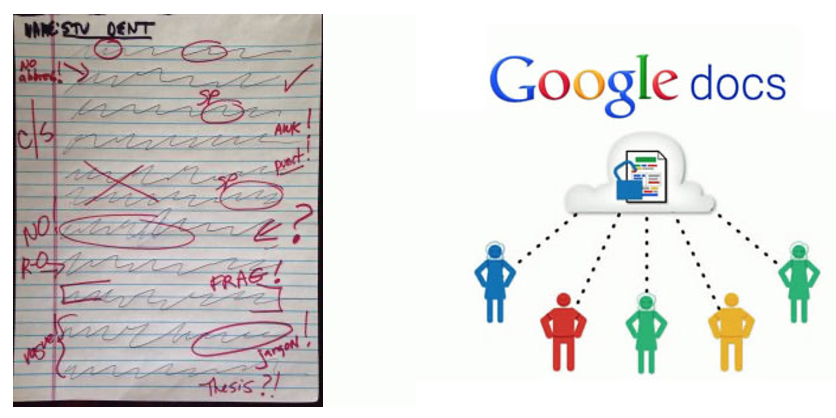 NAME: STU DENT
No
abbrev!
sp
C/S
AWK!
punct!
sp
NO!
?
R-O
FRAG!
vague
jargon!
Thesis?!
Google docs